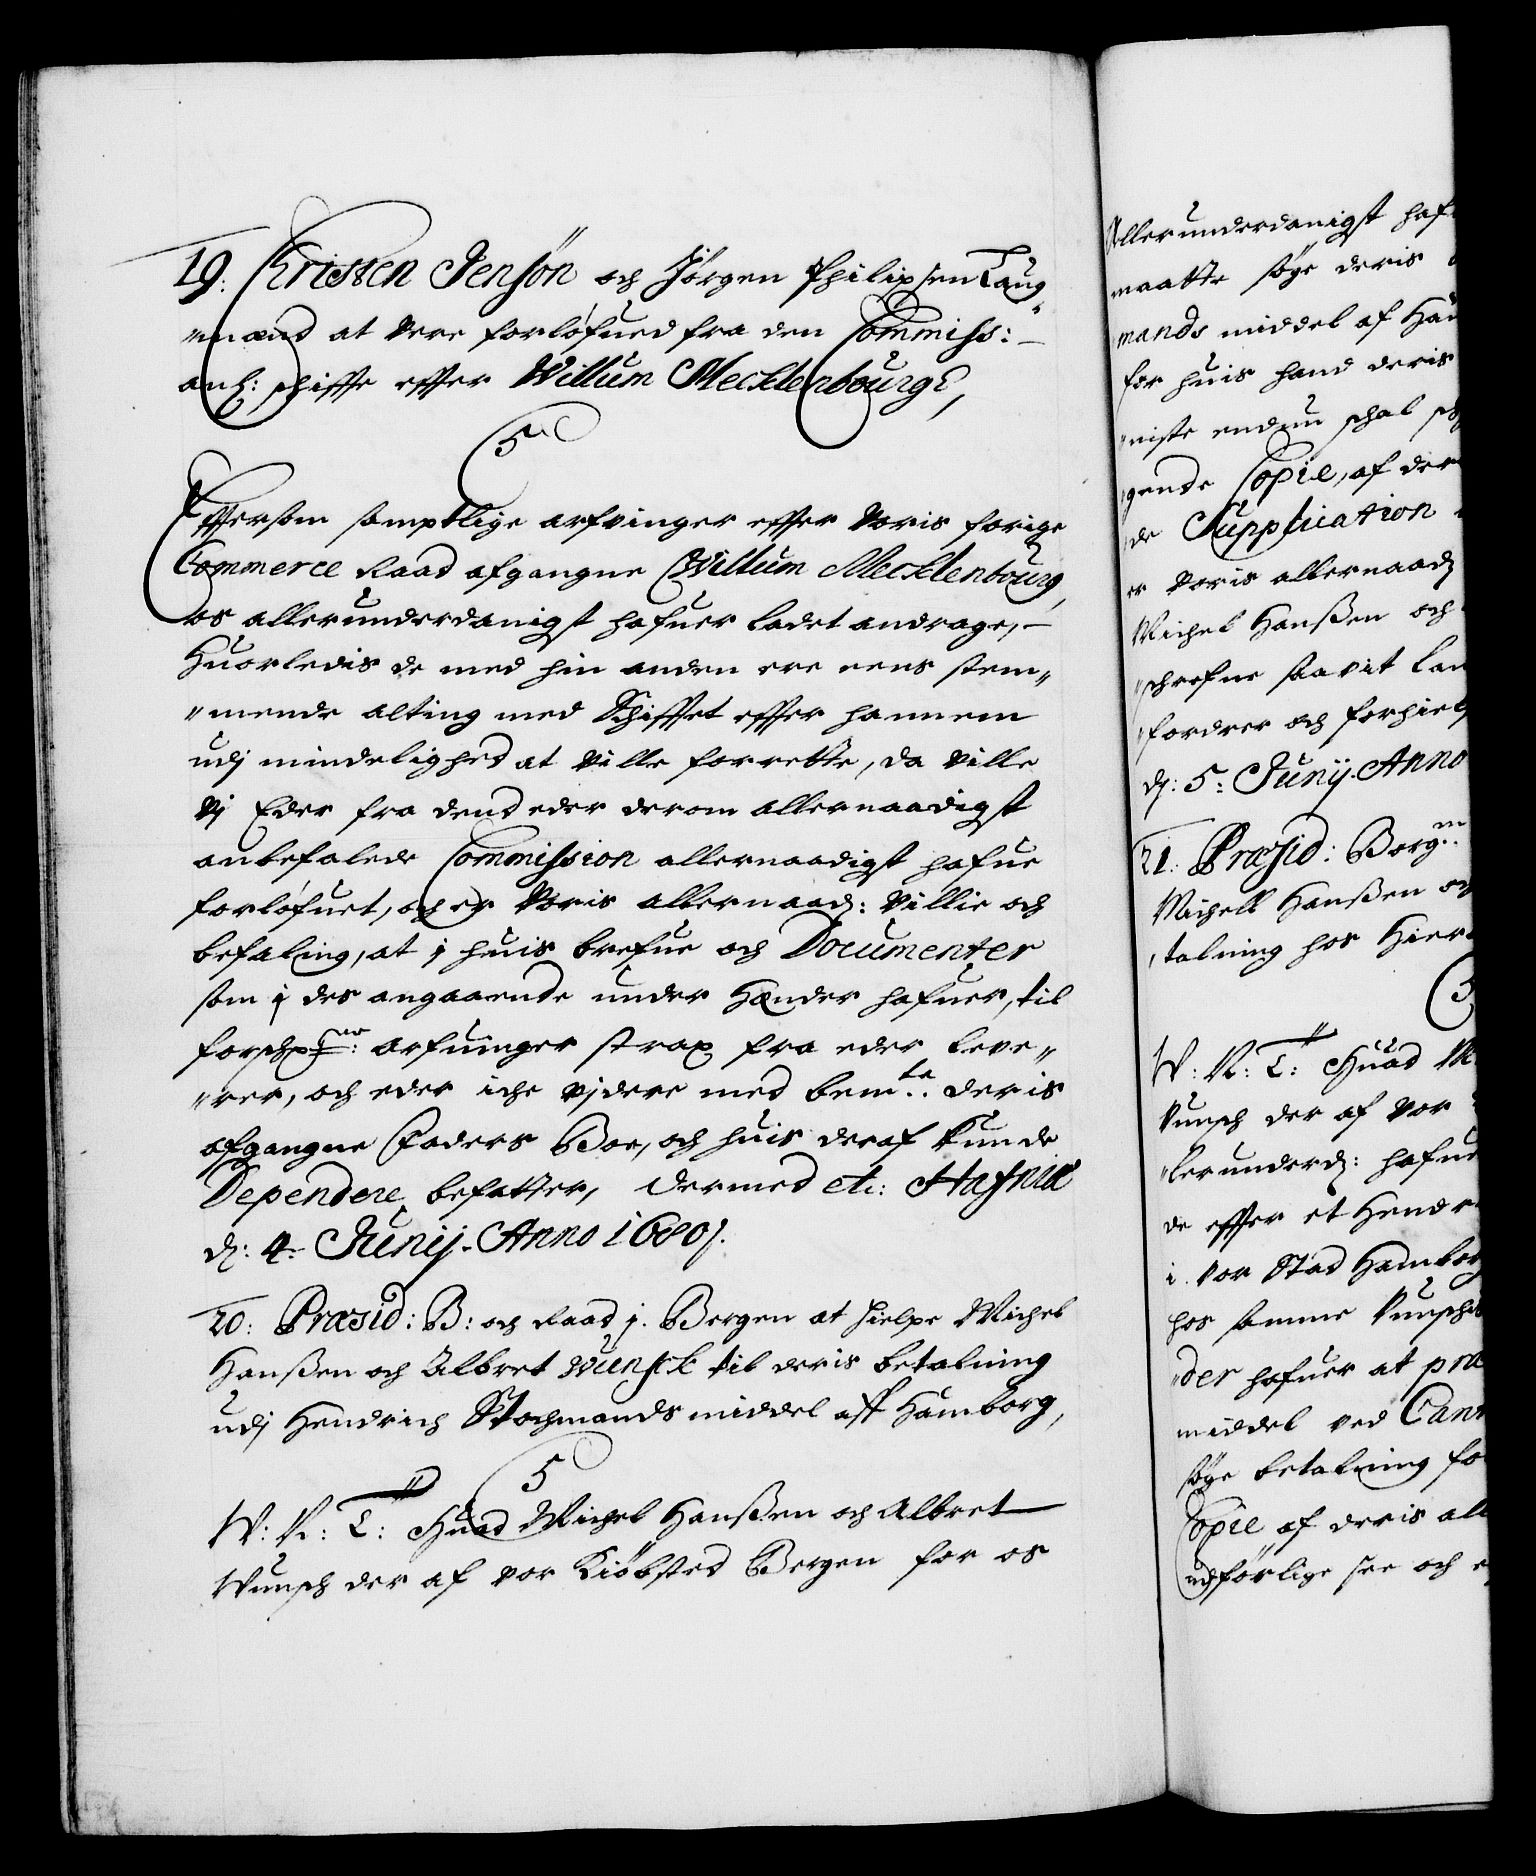 19: Christen Jensön och Jörgen Philipsen Laug-
"mænd at vere forløfued fra den Commiss:
anl: schiffte effter Willum Mecklenbourg,
5
Effersom samptlige arfvinger effter Voris forige
Commerce Raad afgangne Willum Mecklenbourg,
os allerunderdanigst hafuer ladet andrage,
Huorledis de med hin anden ere eens stem"
"mende alting med Schifftet effter hannem
udj mindelighed at ville forrette, da ville
Vj Eder fra dend eder derom allernaadigst
anbefalede Commission allernaadigst hafue
forløfuet, och er Voris allernaad: Villie och
befaling, at j huis brefue och Documenter
som j des angaaende under Hænder hafuer, til
forschr:ne arfuinger strax fra eder leve"
"rer, och eder iche vjdere med bem:te deris
afgangne Faders Boe, och huis deraf kunde
Dependere befatter, dermed etc: Hafniæ
d: 4 Junij. Anno 1680.
20: Præsid: B: och Raad j. Bergen at hielpe Michel
Hanßen och Albret Wunsch til deris betalning
udj Hendrich Stochmands middel aff Hamborg,
5
W: N: T: Huad Michel Hanßen och Albret
Wunsch der af vor Kiöbsted Bergen for os
Allerunderdanigst haf
maatte søge deris
mands middel af Ham
for huis hand deris
"niste endnu schal
gende Copie, af der
de Supplication
er Voris allernaad
Michel Hanßen och
"schrefne saavit lan
"fordrer och forhielp
d: 5: Junij. Anno
21: Præsid: Borgm:
Michell Hanßen oc
talning hos Hier
5
W: N: T: Huad M
Wunsch der af vor
"lerunderd: hafue
de effter et Hendr
i vor Stad Hamborg
hos samme Wunsch
"der hafuer at præ
middel ved
søge betalning fo
Copie af deris all
udførlige see och e